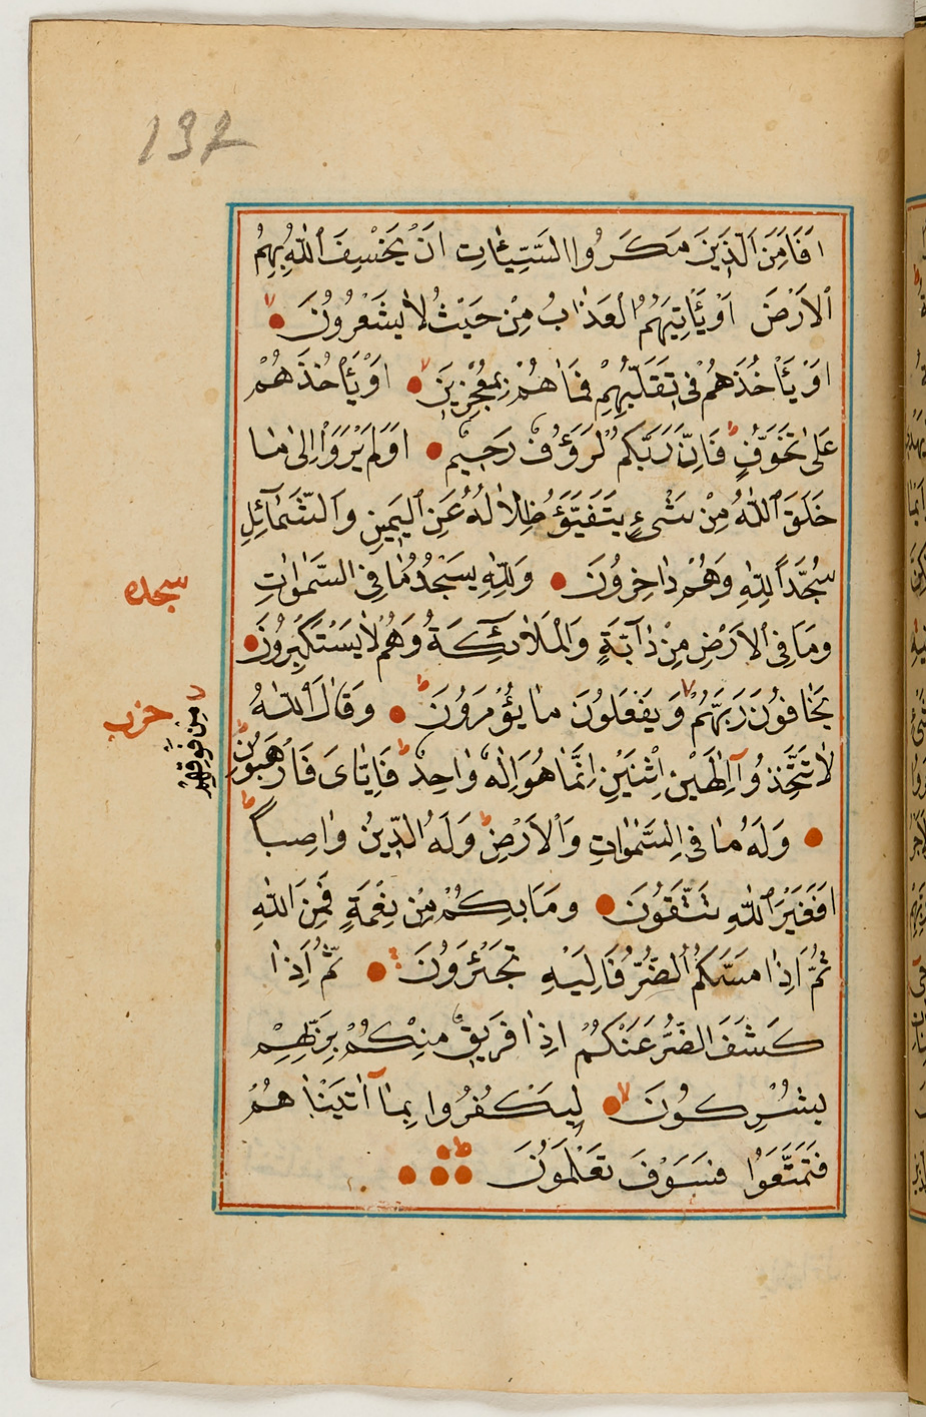 132
افَاَمِنَ الَّذِينَ مَكَرُوا السَّيِّئَاتِ اَنْ يَخْسِفَ اللّٰهُ بِهِمُ
الْاَرْضَ اَوْ يَاْتِيَهُمُ الْعَذَابُ مِنْ حَيْثُ لَا يَشْعُرُونَ
اَوْ يَاْخُذَهُمْ فِى تَقَلُّبِهِمْ فَمَا هُمْ بِمُعْجِزِينَ اَوْ يَاْخُذَهُمْ
عَلٰى تَخَوُّفٍ ط فَاِنَّ رَبَّكُمْ لَرَؤُفٌ رَحِيمٌ اَوَلَمْ يَرَوْا اِلٰى مَا
خَلَقَ اللّٰهُ مِنْ شَىْءٍ يَتَفَيَّؤُ ظِلَالُهُ عَنِ الْيَمِينِ وَالشَّمَآئِلِ
سُجَّدًا لِلّٰهِ وَهُمْ دَاخِرُونَ وَلِلّٰهِ يَسْجُدُ مَا فِى السَّمٰوَاتِ
سجده
وَمَا فِى الْاَرْضِ مِنْ دَآبَّةٍ وَالْمَلَائِكَةُ وَهُمْ لَا يَسْتَكْبِرُونَ
يَخَافُونَ رَبَّهُمْ وَيَفْعَلُونَ مَا يُؤْمَرُونَ ط وَقَالَ اللّٰهُ
مِنْ فَوْقِهِمْ
حزب
لَا تَتَّخِذُوآ اِلٰهَيْنِ اثْنَيْنِ اِنَّمَا هُوَ اِلٰهٌ وَاحِدٌ ط فَاِيَّاىَ فَارْهَبُونِ ط
وَلَهُ مَا فِى السَّمٰوَاتِ وَالْاَرْضِ ط وَلَهُ الدِّينُ وَاصِبًا ط
اَفَغَيْرَ اللّٰهِ تَتَّقُونَ وَمَا بِكُمْ مِنْ نِعْمَةٍ فَمِنَ اللّٰهِ
ثُمَّ اِذَا مَسَّكُمُ الضُّرُّ فَاِلَيْهِ تَجْئَرُونَ ثُمَّ اِذَا
كَشَفَ الضُّرَّ عَنْكُمْ اِذَا فَرِيقٌ مِنْكُمْ بِرَبِّهِمْ
يُشْرِكُونَ لا لِيَكْفُرُوا بِمَآ اٰتَيْنَاهُمْ
فَتَمَتَّعُوا فَسَوْفَ تَعْلَمُونَ ط